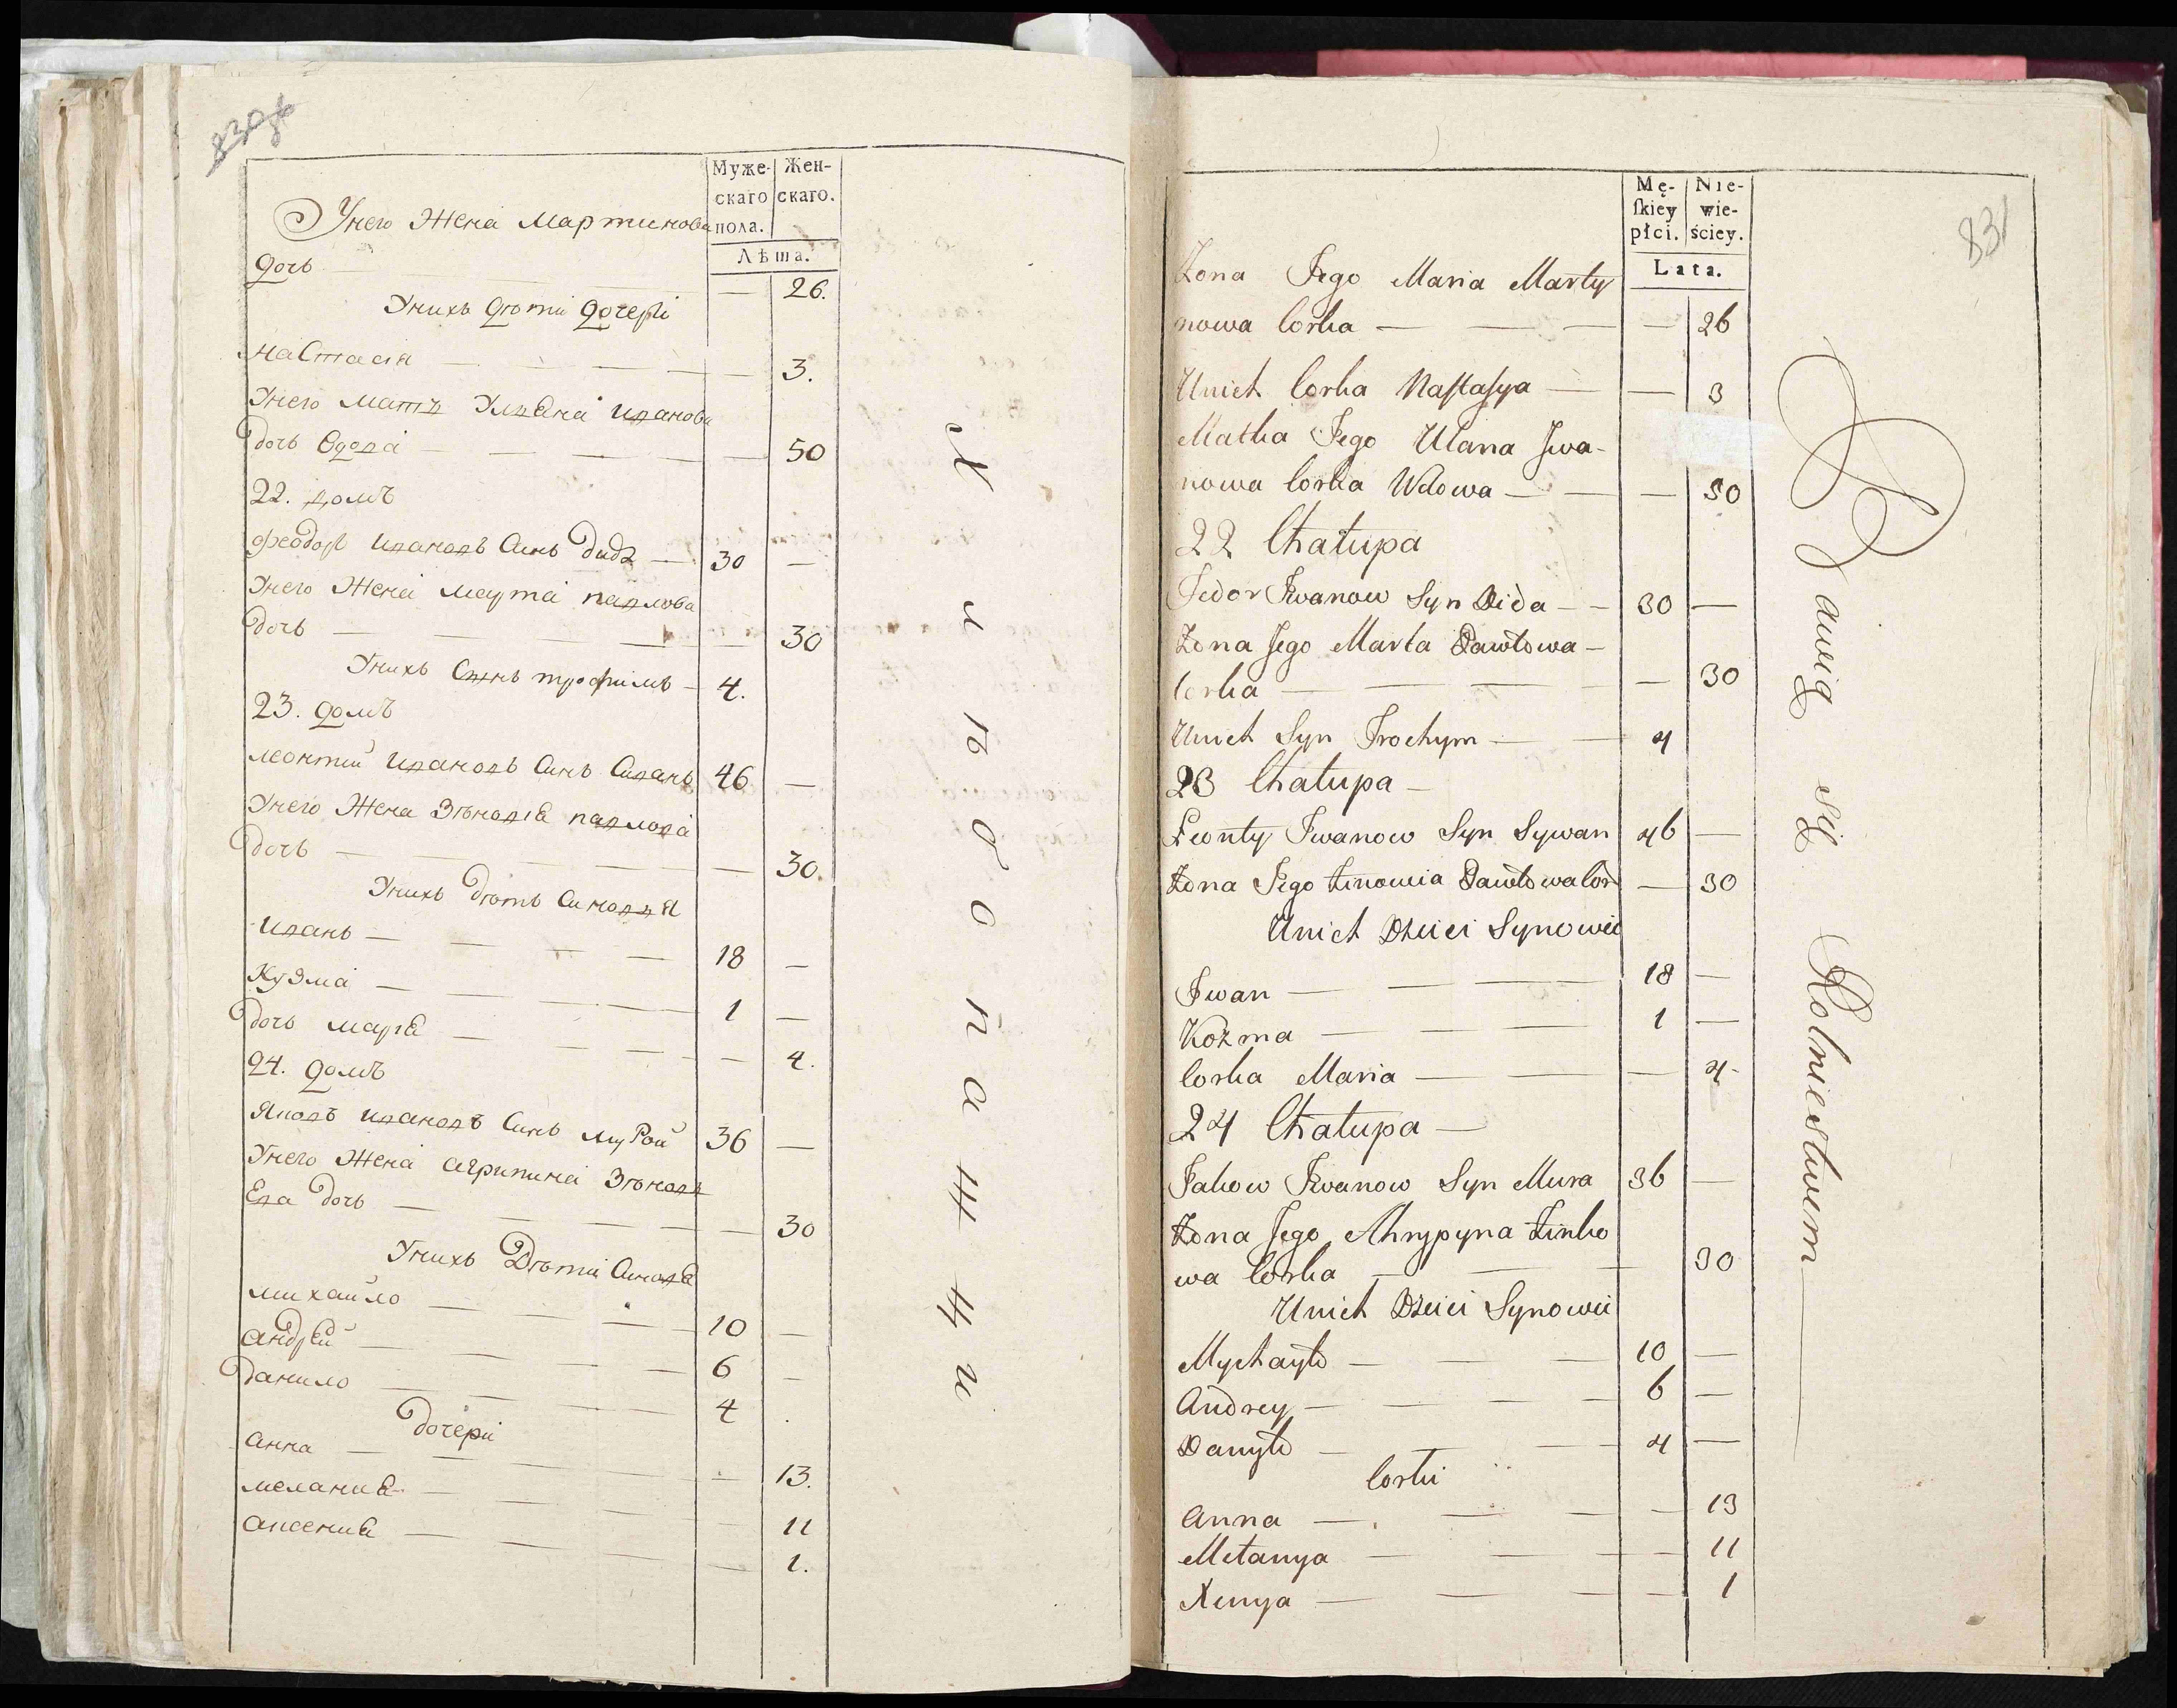 830 об
Муже- Жен-
скаго скаго.
пола.
Лѣта.
Унего Жена Мартинова
дочь — 26.
Унихъ дѣти дочери
настасія — 3.
Унего матъ Улвяна иванова
дочь вдова — 50
22. домъ
Феодоръ ивановъ Синъ Дида — 30 —
Унего Жена марта павлова
дочь — 30
Унихъ Синъ трофимъ — 4.
23. домъ
леонтий ивановъ Синъ Сиванъ 46 —
Унего Жена Зѣновія павлова
дочь — 30.
Унихъ дѣти Синовѧ
иванъ — 18 —
Кузма — 1 —
дочь марія — 4.
24. домъ
Яковъ ивановъ Синъ мурой 36 —
Унего Жена агрипина Зѣнов
ева дочь — 30
Унихъ Дѣти Синовя
михайло — 10 —
андрей — 6 —
данило — 4
дочери
анна — 13.
мелания — 11
аксения — 1.
831
Mę- Nie-
skiey wie-
płci. ściey.
Lata.
Zona Jego Maria Marty
nowa Corka — 26
Unich Corka Nastasya — 3
Matka Jego Ulana Jwa-
nowa Corka Wdowa — 50
22 Chałupa
Fedor Jwanow Syn Dida — 30 —
Zona Jego Marta Pawłowa —
Corka — 30
Unich Syn Trochym — 4
23 Chałupa —
Leonty Jwanow Syn Sywan 46 —
Zona Jego Zinowia Pawłowa Cor — 30
Unich Dzieci Synowie
Jwan — 18 —
Kozma — 1 —
Corka Maria — 4
24 Chałupa —
Jakow Jwanow Syn Mura 36 —
Zona Jego Ahrypyna Zinko
wa Corka — 30
Unich Dzieci Synowie
Mychayło — 10 —
Andrey — 6 —
Danyło — 4 —
Corki
Anna — 13
Mełanya — 11
Xenya — 1
Bawią się Rolniestwem